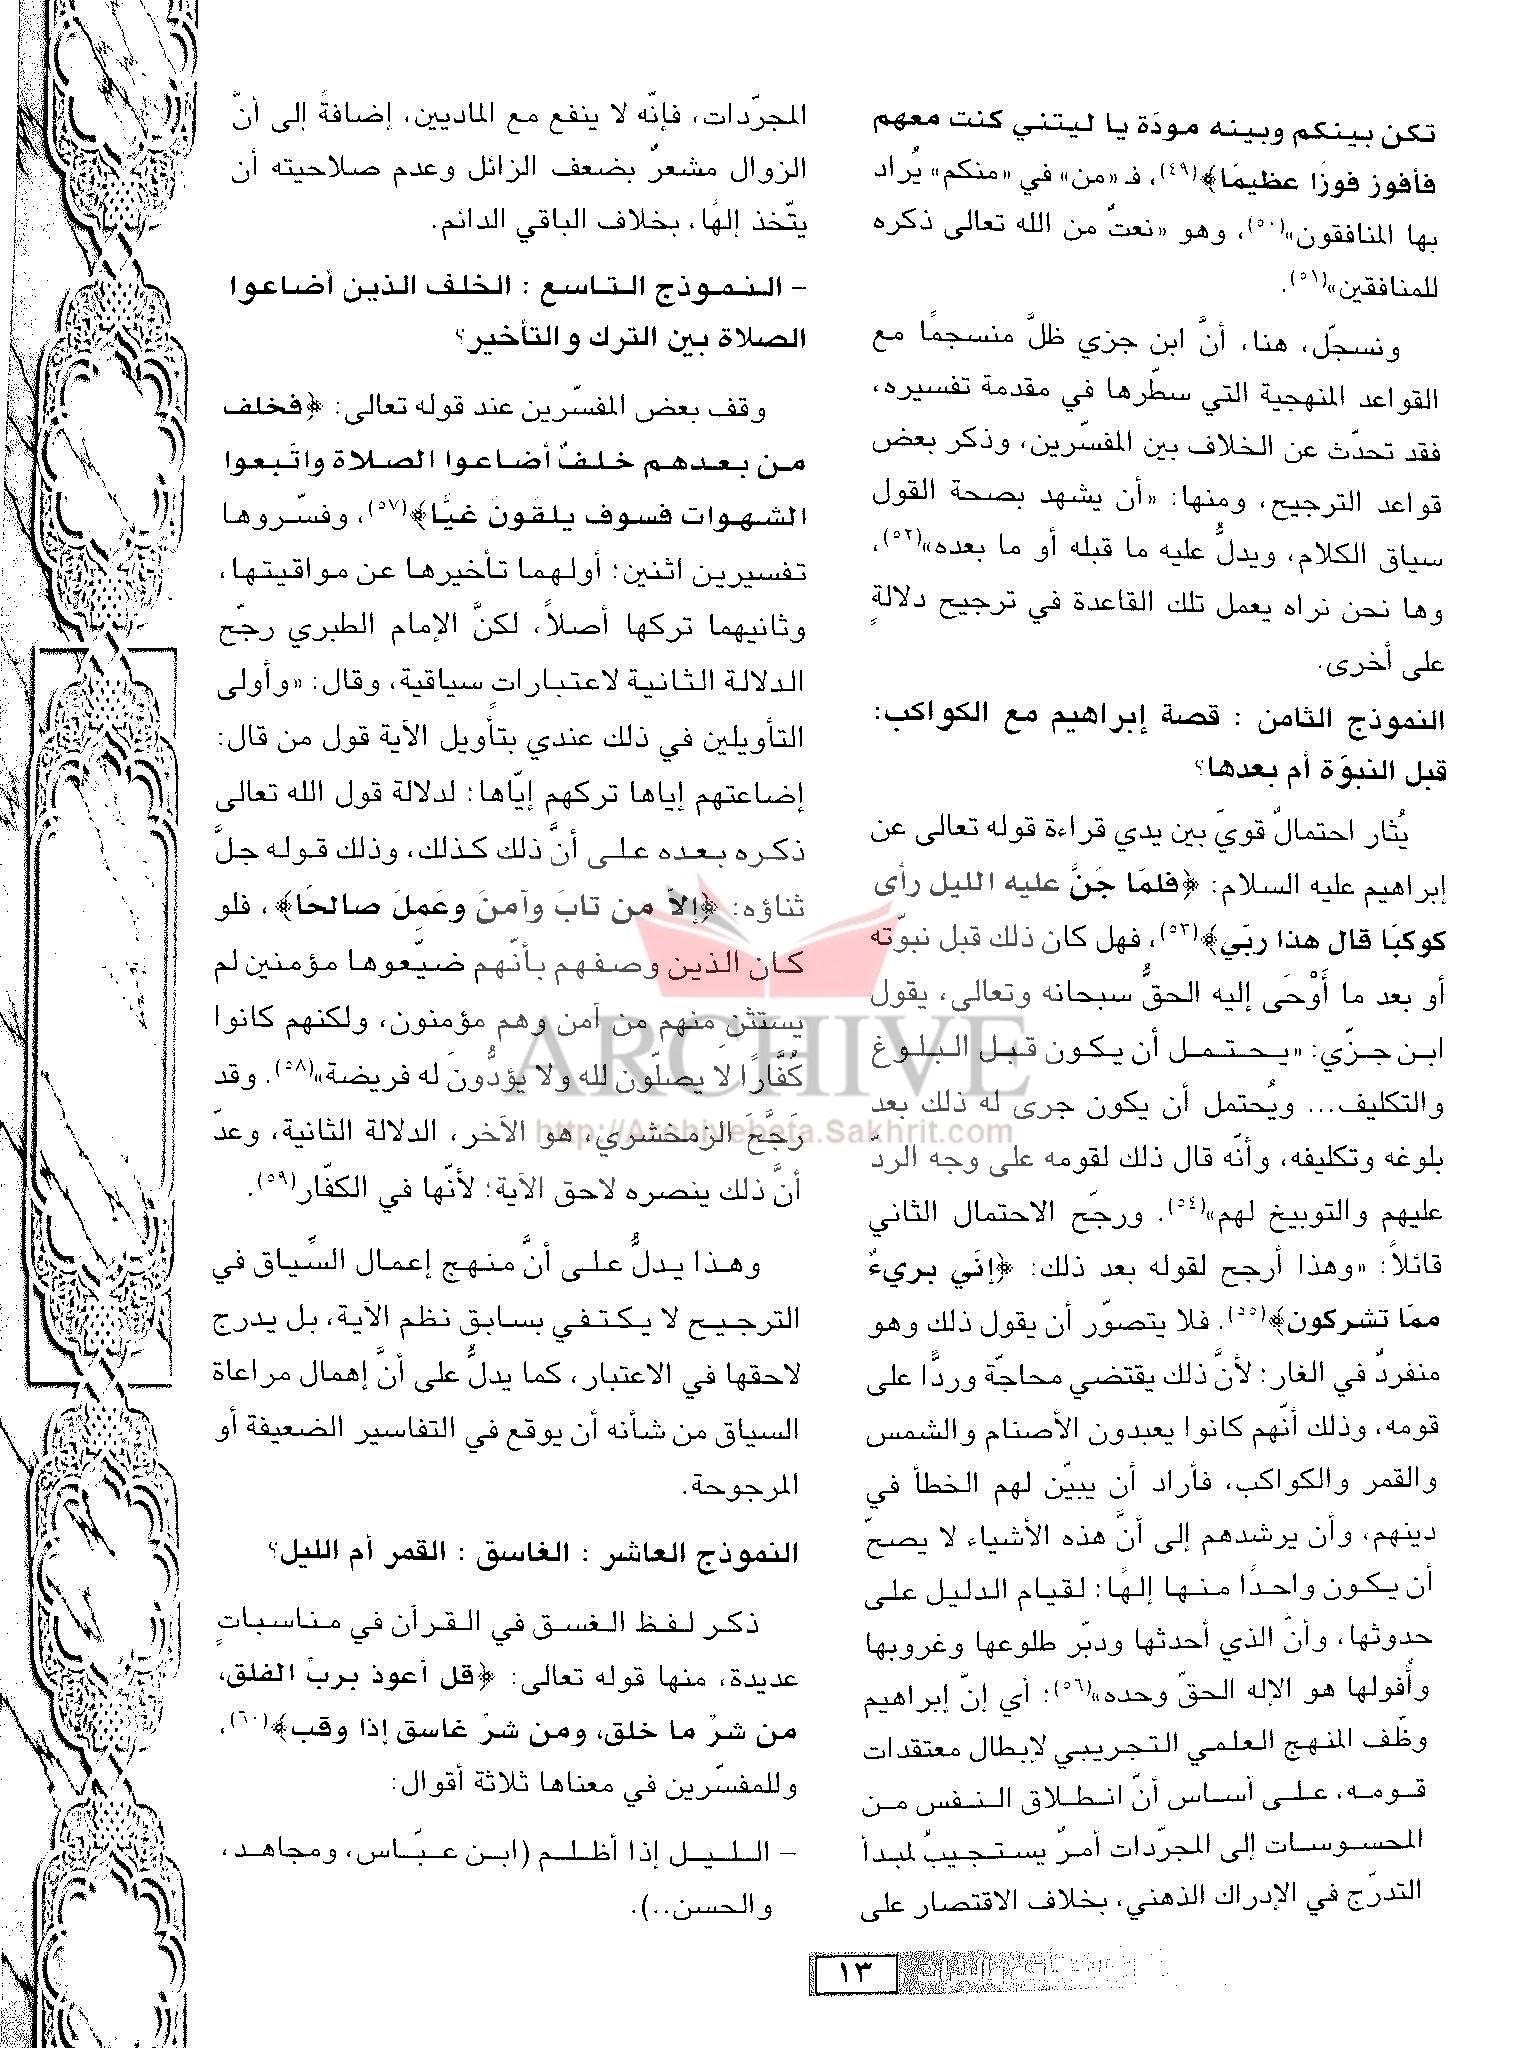 تكن بينكم وبينه مودّة يا ليتني كنت معهم
فأفوز فوزًا عظيمًا﴾(٤٩)، فـ «من» في «منكم» يُراد
بها المنافقون»(٥٠)، وهو «نعتٌ من الله تعالى ذكره
للمنافقين»(٥١).
ونسجّل، هنا، أنَّ ابن جزي ظلَّ منسجمًا مع
القواعد المنهجية التي سطّرها في مقدمة تفسيره،
فقد تحدّث عن الخلاف بين المفسّرين، وذكر بعض
قواعد الترجيح، ومنها: «أن يشهد بصحة القول
سياق الكلام، ويدلُّ عليه ما قبله أو ما بعده»(٥٢)،
وها نحن نراه يعمل تلك القاعدة في ترجيح دلالةٍ
على أخرى.
النموذج الثامن : قصة إبراهيم مع الكواكب:
قبل النبوّة أم بعدها؟
يُثار احتمالٌ قويّ بين يدي قراءة قوله تعالى عن
إبراهيم عليه السلام: ﴿فلمّا جَنَّ عليه الليل رأى
كوكبًا قال هذا ربّي﴾(٥٣)، فهل كان ذلك قبل نبوّته
أو بعد ما أَوْحَى إليه الحقُّ سبحانه وتعالى، يقول
ابن جزّي: «يحتمل أن يكون قبل البلوغ
والتكليف... ويُحتمل أن يكون جرى له ذلك بعد
بلوغه وتكليفه، وأنّه قال ذلك لقومه على وجه الردّ
عليهم والتوبيخ لهم»(٥٤). ورجّح الاحتمال الثاني
قائلاً: «وهذا أرجح لقوله بعد ذلك: ﴿إنّي بريءٌ
ممّا تشركون﴾(٥٥). فلا يتصوّر أن يقول ذلك وهو
منفردٌ في الغار؛ لأنَّ ذلك يقتضي محاجّة وردًّا على
قومه، وذلك أنّهم كانوا يعبدون الأصنام والشمس
والقمر والكواكب، فأراد أن يبيّن لهم الخطأ في
دينهم، وأن يرشدهم إلى أنَّ هذه الأشياء لا يصحّ
أن يكون واحدًا منها إلهًا؛ لقيام الدليل على
حدوثها، وأنّ الذي أحدثها ودبّر طلوعها وغروبها
وأُفولها هو الإله الحقّ وحده»(٥٦)؛ أي إنّ إبراهيم
وظّف المنهج العلمي التجريبي لإبطال معتقدات
قومه، على أساس أنّ انطلاق النفس من
المحسوسات إلى المجرّدات أمرٌ يستجيبُ لمبدأ
التدرّج في الإدراك الذهني، بخلاف الاقتصار على
المجرّدات، فإنّه لا ينفع مع الماديين، إضافةً إلى أنَّ
الزوال مشعرٌ بضعف الزائل وعدم صلاحيته أن
يتّخذ إلهًا، بخلاف الباقي الدائم.
- النموذج التاسع : الخلف الذين أضاعوا
الصلاة بين الترك والتأخير؟
وقف بعض المفسّرين عند قوله تعالى: ﴿فخلف
من بعدهم خلفٌ أضاعوا الصلاة واتّبعوا
الشهوات فسوف يلقون غيًّا﴾(٥٧)، وفسّروها
تفسيرين اثنين؛ أولهما تأخيرها عن مواقيتها،
وثانيهما تركها أصلاً، لكنَّ الإمام الطبري رجّح
الدلالة الثانية لاعتبارات سياقية، وقال: «وأولى
التأويلين في ذلك عندي بتأويل الآية قول من قال:
إضاعتهم إياها تركهم إيّاها؛ لدلالة قول الله تعالى
ذكره بعده على أنَّ ذلك كذلك، وذلك قوله جلَّ
ثناؤه: ﴿إلاّ من تابَ وآمنَ وعَمِلَ صالحًا﴾، فلو
كان الذين وصفهم بأنّهم ضيّعوها مؤمنين لم
يستثنِ منهم من آمن وهم مؤمنون، ولكنهم كانوا
كُفَّارًا لا يصلّون لله ولا يؤدُّونَ له فريضة»(٥٨). وقد
رَجَّحَ الزمخشري، هو الآخر، الدلالة الثانية، وعدّ
أنَّ ذلك ينصره لاحق الآية؛ لأنّها في الكفّار(٥٩).
وهذا يدلُّ على أنَّ منهج إعمال السِّياق في
الترجيح لا يكتفي بسابق نظم الآية، بل يدرج
لاحقها في الاعتبار، كما يدلُّ على أنَّ إهمال مراعاة
السياق من شأنه أن يوقع في التفاسير الضعيفة أو
المرجوحة.
النموذج العاشر : الغاسق : القمر أم الليل؟
ذكر لفظ الغسق في القرآن في مناسباتٍ
عديدة، منها قوله تعالى: ﴿قل أعوذ بربّ الفلق،
من شرّ ما خلق، ومن شرّ غاسق إذا وقب﴾(٦٠)،
وللمفسّرين في معناها ثلاثة أقوال:
- الليل إذا أظلم (ابن عبّاس، ومجاهد،
والحسن..).
ARCHIVE
http://Archivebeta.Sakhrit.com
١٣